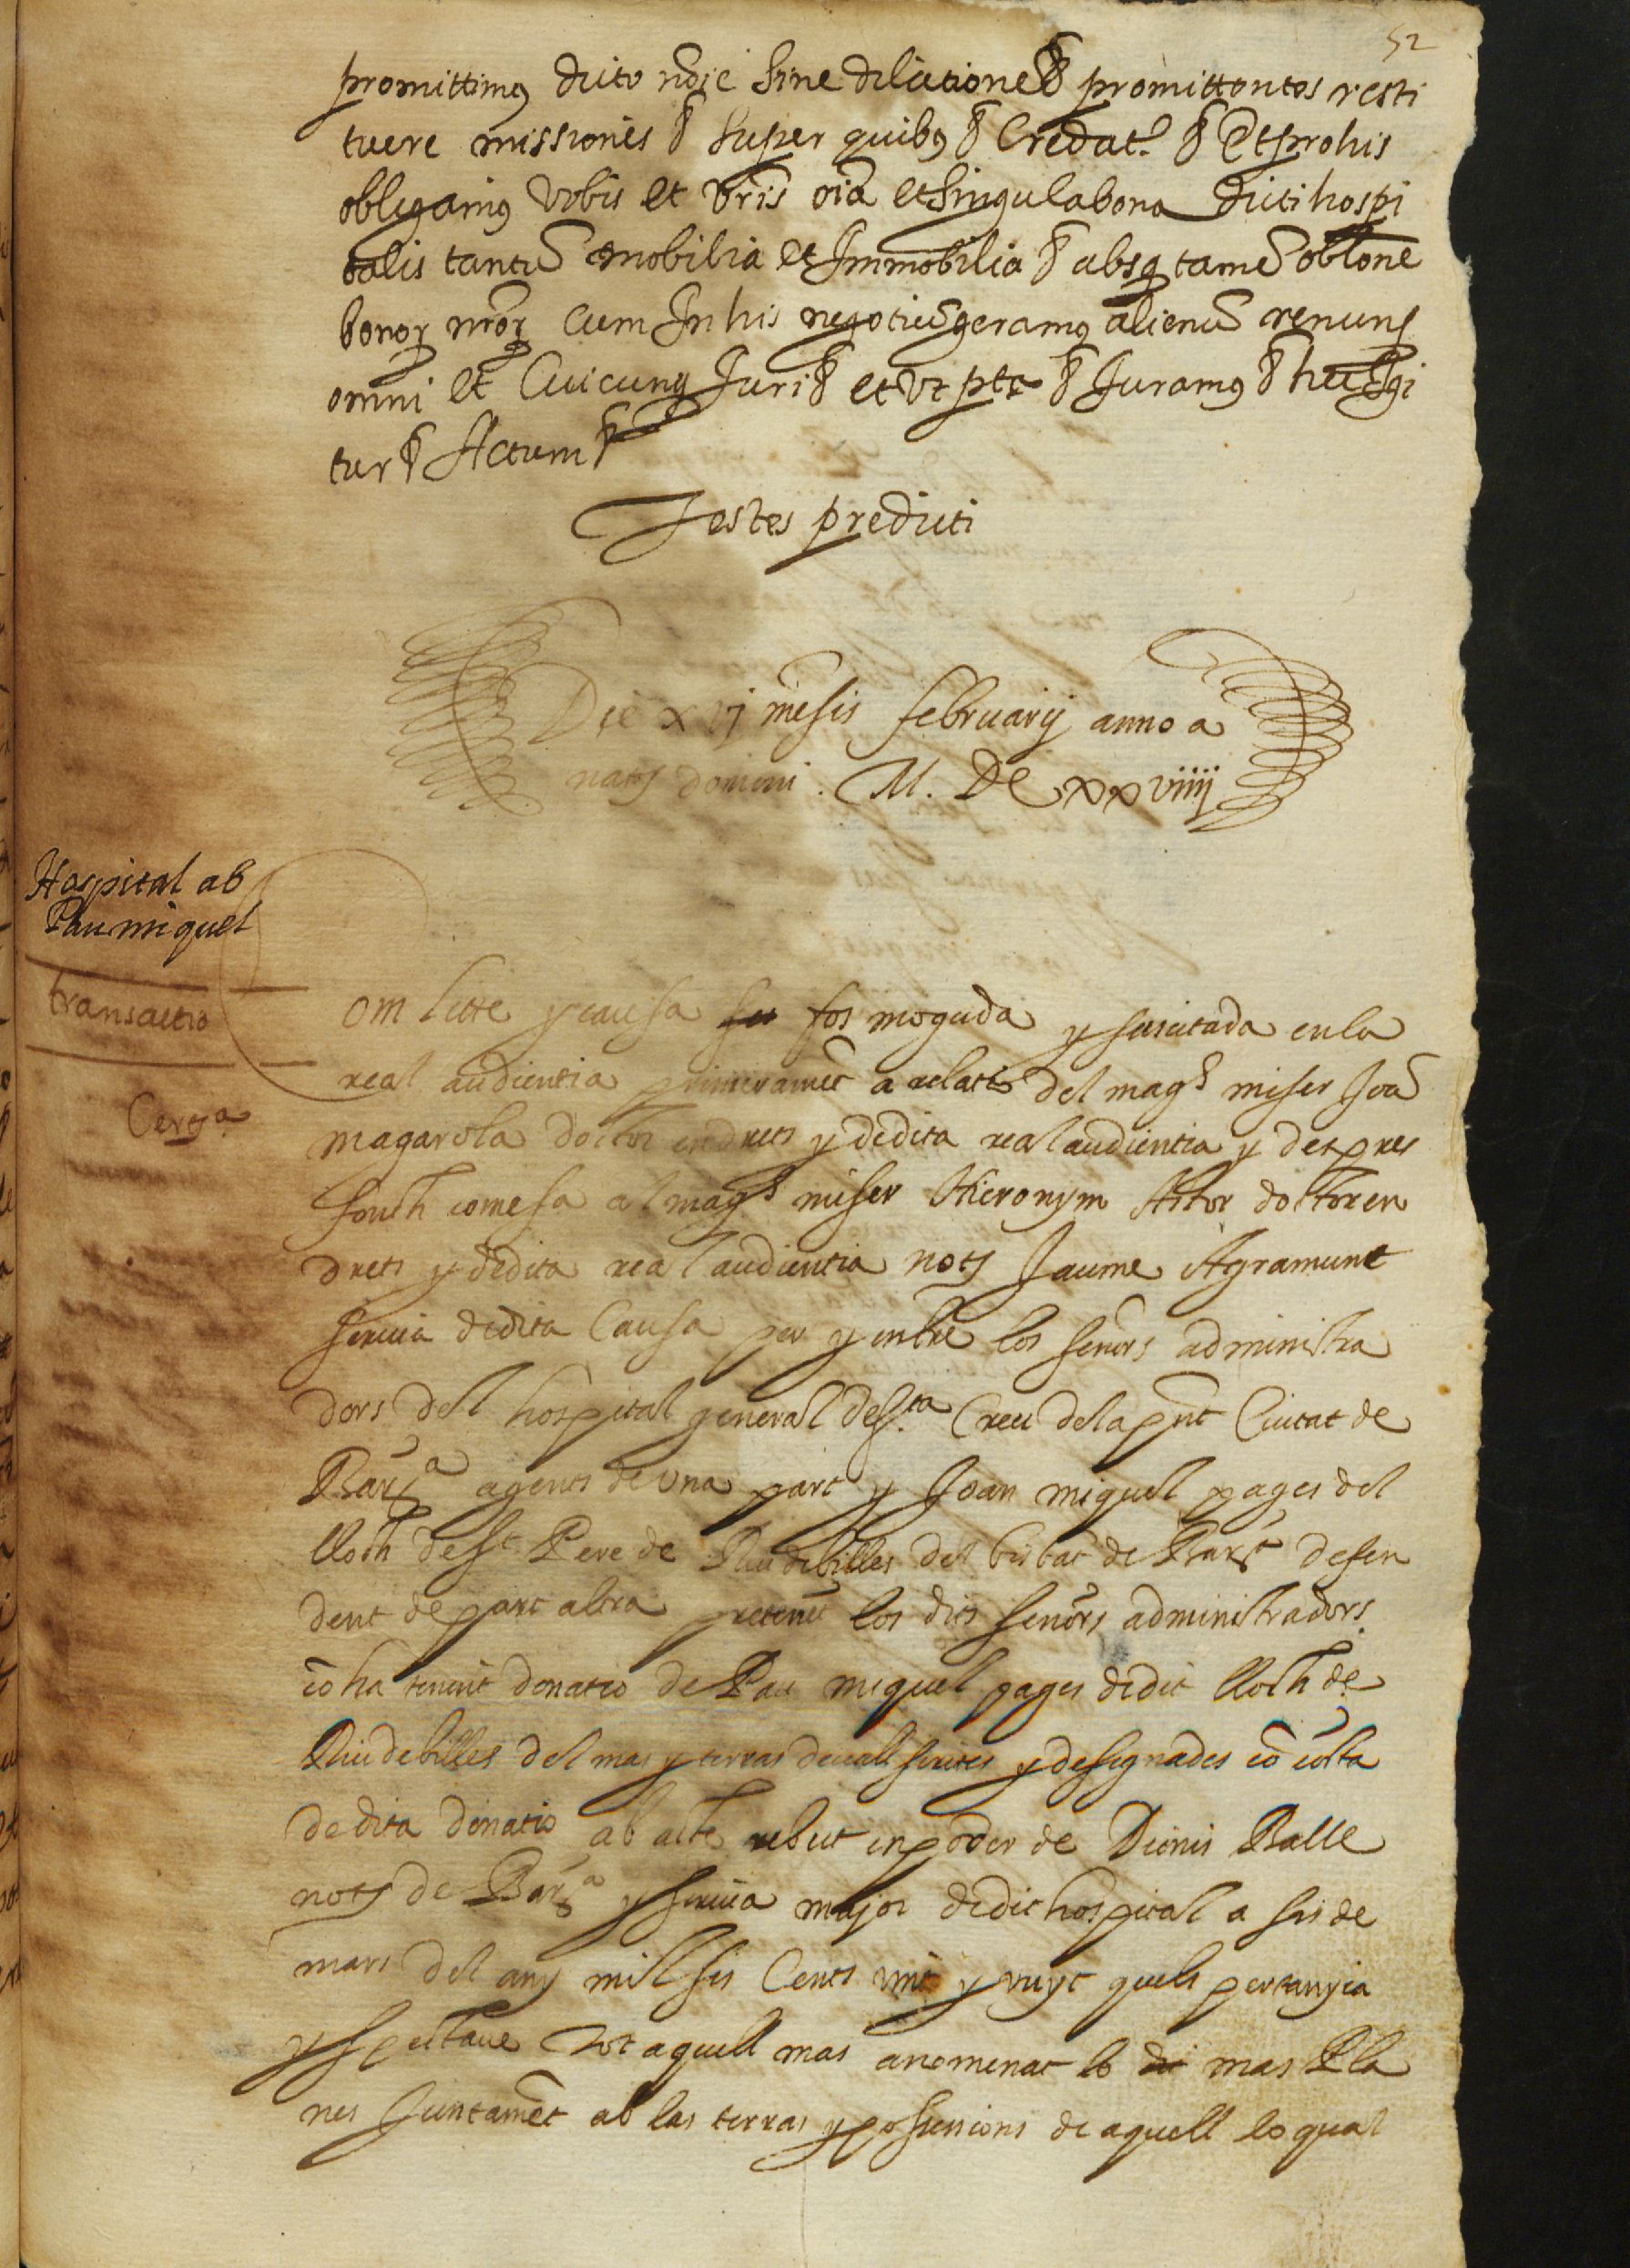 52
promittimꝯ dicto nōie sine dilatione & promittentes resti
tuere missiones & super quibꝯ & Credat.r & Et pro his
obligamꝯ vobis et vr̄is oīa et singula bona dicti hospi
talis tantū mobilia et Immobilia & absq tamē obl̄one
bonoꝝ nr̄oꝝ cum In his negotiū geramꝯ alienū renunꝭ
omni et Cuicunq Juri & et vt ptr & Juramꝯ & hec Igi
tur & Actum &
Testes predicti
Die xvij mēsis februarij anno a
natꝭ domini . M. DC xxviiij
Hospital ab
Pau miquel
transactio
Certa.
Com litte y causa fos moguda y suscitada en la
real audientia primeramēt a relatio del magch miser Joā
magarola doctor en drets y dedita real audientia y despres
fonch comesa al magch miser Hieronym Astor doctor en
drets y dedita real audientia notꝭ Jaume Agramunt
scriua dedita Causa per y entre los senōrs administra
dors del hospital general de s.ta Creu dela pn̄t Ciutat de
Barꝭa agents de una part y Joan miquel pages del
lloch de st Pere de Riudebilles del bisbat de Barꝭa defen
dent de part altra pretenēt los dits senōrs administradors
cō ha tenint donatio de Pau miquel pages dedit lloch de
Riudebilles del mas y terras deuall scrites y designades cō cōsta
dedita donatio ab acte rebut en poder de Dionis Balle
notꝭ de Barꝭa y scriua major dedit hospital a sis de
mars del any mil sis Cents vint y vuyt quels pertanyia
y spectaue tot aquell mas anomenat lo mas Pla
nes Juntamēt ab las terras y possessions de aquell lo qual